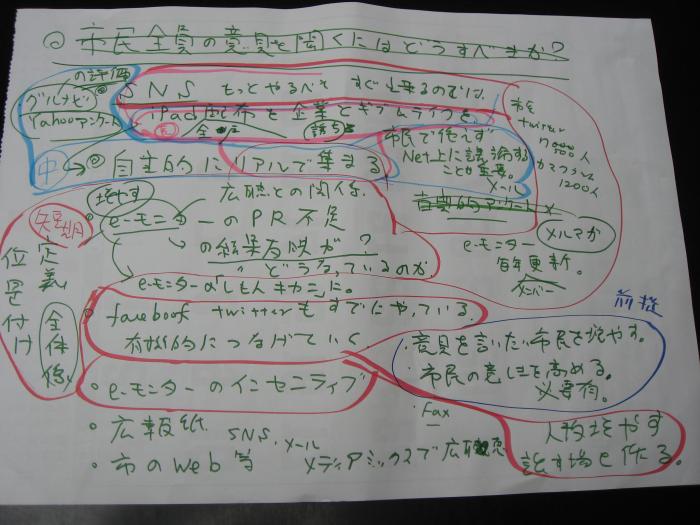 ◎ 市民全員の意見を聞くにはどうすべきか?
の評価
グルナビ
Yahooアンケート
SNS もっとやるべき すぐ出来るのでは。
iPad配布を企業とギブ
全戸
中
◎自主的にリアルで集まる
市民で絶えず
Net上に議論する
ことが重要。
メール
市長
twitter
500人
1200人
増やす
広聴との関係。
e-モニターのPR不足
の結果反映が?
どうなっているのか。
メルマガ
e-モニター
毎年更新。
メンバー
短期
定義
位置付け
全体像
e-モニターの
facebook twitterもすでにやっている。
有機的につなげていく。
e-モニターのインセンティブ
前提
・意見を言いたい市民を増やす。
・市民の意識を高める。
必要有。
・Fax
・広報紙 SNS、メール
・市のWeb等 メディアミックスで広聴
人を増やす
話す場を作る。